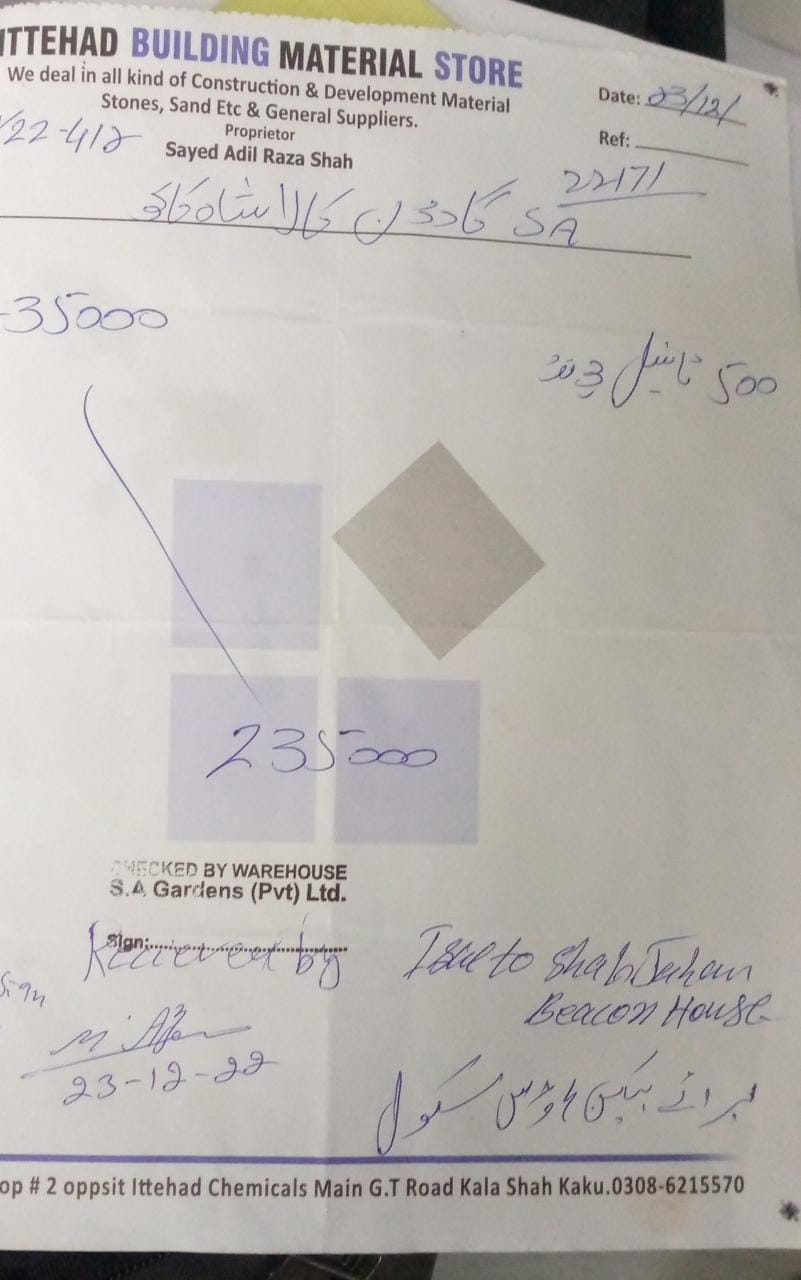 ITTEHAD BUILDING MATERIAL STORE
We deal in all kind of Construction & Development Material
Stones, Sand Etc & General Suppliers.
Proprietor
Sayed Adil Raza Shah
Date: 23/12/
Ref:
/22-412
22171
SA گارڈن کالا شاہ کاکو
35000
500 ٹائیل
235000
CHECKED BY WAREHOUSE
S.A Gardens (Pvt) Ltd.
Sign:
Recieved by
Sign
23-12-22
Isue to Shah Jahan
Beacon House
برائے بیکن ہاؤس سکول
op # 2 oppsit Ittehad Chemicals Main G.T Road Kala Shah Kaku.0308-6215570